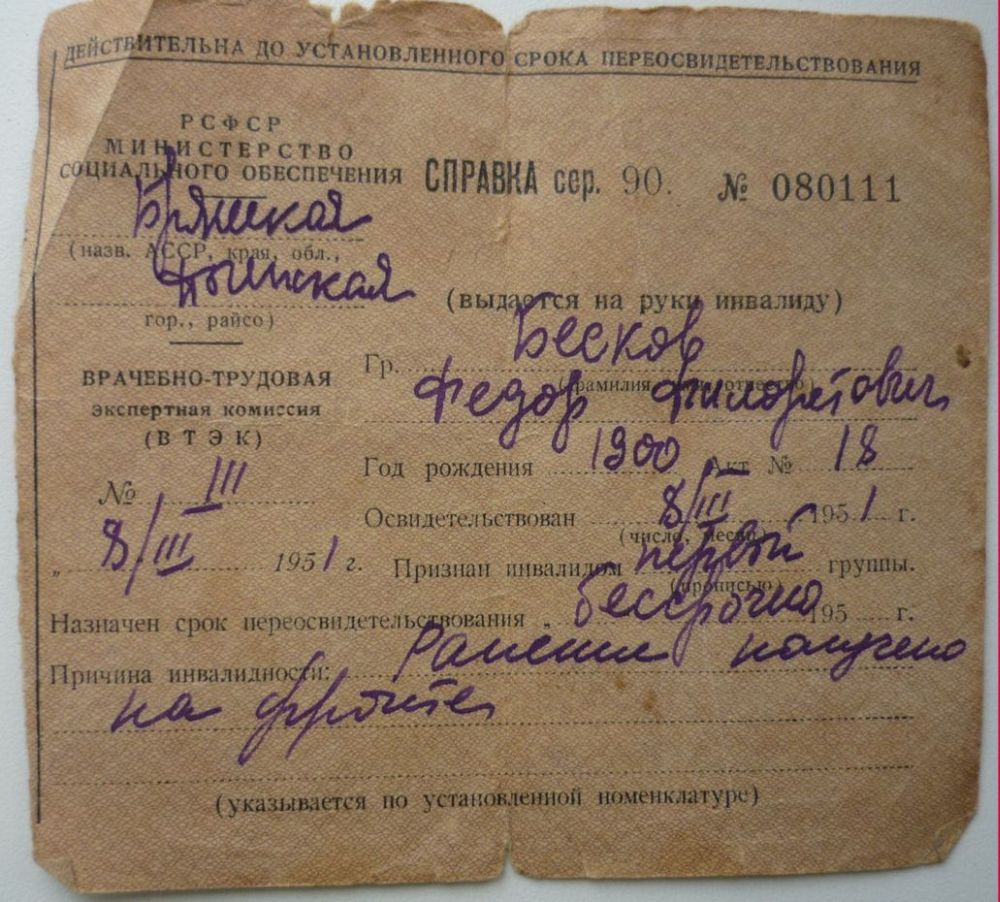 ДЕЙСТВИТЕЛЬНА ДО УСТАНОВЛЕННОГО СРОКА ПЕРЕОСВИДЕТЕЛЬСТВОВАНИЯ
РСФСР
МИНИСТЕРСТВО
СОЦИАЛЬНОГО ОБЕСПЕЧЕНИЯ
СПРАВКА сер. 90. № 080111
Брянская
(назв. АССР, края, обл.,
гор., райсо)
(выдается на руки инвалиду)
ВРАЧЕБНО-ТРУДОВАЯ
ЭКСПЕРТНАЯ КОМИССИЯ
(ВТЭК)
№ III
8/III 1951 г.
Гр. Бесков
(фамилия, имя, отчество)
Федор Филаретович
Год рождения 1900 Акт № 18
Освидетельствован 8/III 1951 г.
(число, месяц)
Признан инвалидом первой группы.
(прописью)
Назначен срок переосвидетельствования „ бессрочно 195 г.
Причина инвалидности: Ранение получено
на фронте
(указывается по установленной номенклатуре)